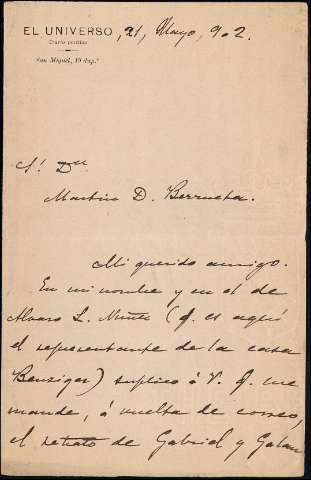 EL UNIVERSO, 21, Mayo, 902.
Diario católico
San Miguel, 19 dup.º
Sr. Dn.
Martín D. Berrueta.
Mi querido amigo.
En mi nombre y en el de
Alvaro L. Núñez (q. es aquí
el representante de la casa
Benziger) suplico á V. q. me
mande, á vuelta de correo,
el retrato de Gabriel y Galán